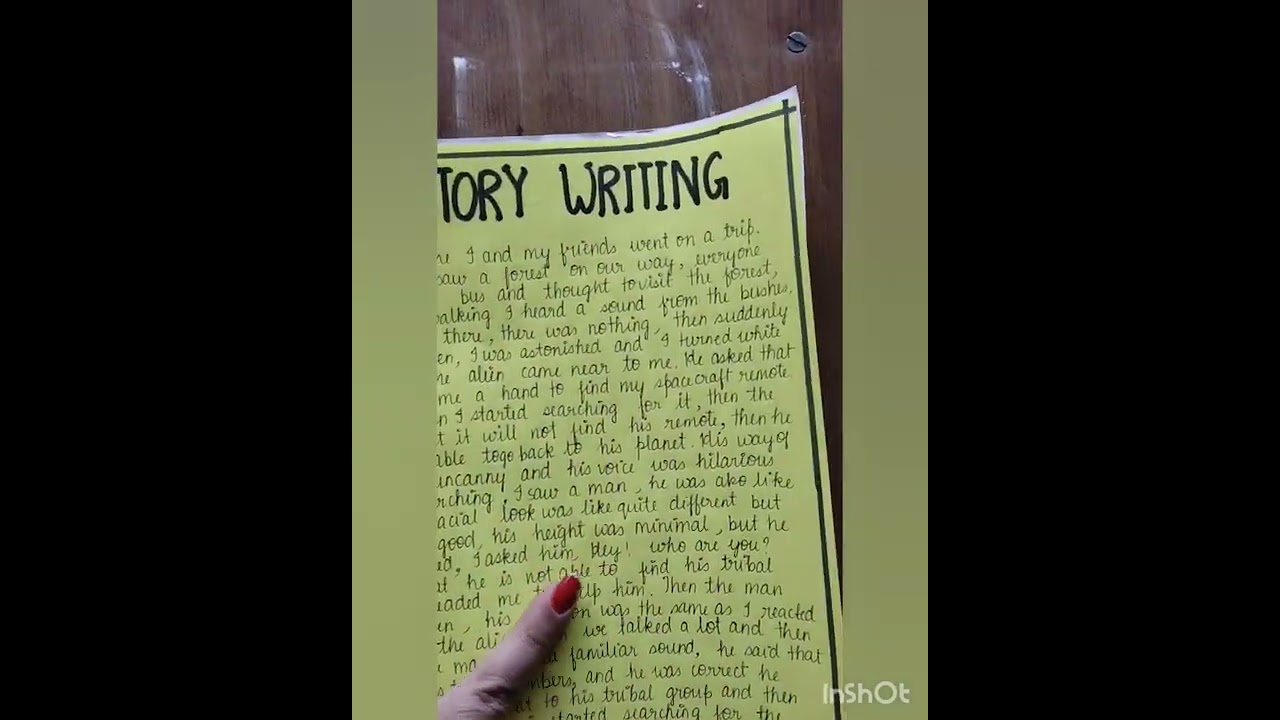 TORY WRITING
I and my friends went on a trip.
saw a forest on our way, everyone
bus and thought tovisit the forest,
alking I heard a sound from the bushes,
there, there was nothing, then suddenly
en, I was astonished and I turned white
he alien came near to me. He asked that
me a hand to find my spacecraft remote.
n I started searching for it, then the
t it will not find his remote, then he
able togo back to his planet. His way of
uncanny and his voice was hilarious
rching, I saw a man, he was also like
acial look was like quite different but
good, his height was minimal, but he
ed, I asked him, Hey! who are you?
at he is not able to find his tribal
eaded me to help him. Then the man
en, his on was the same as I reacted
the ali we talked a lot and then
ma familiar sound, he said that
mbers, and he was correct he
at to his tribal group and then
started searching for the
InShOt